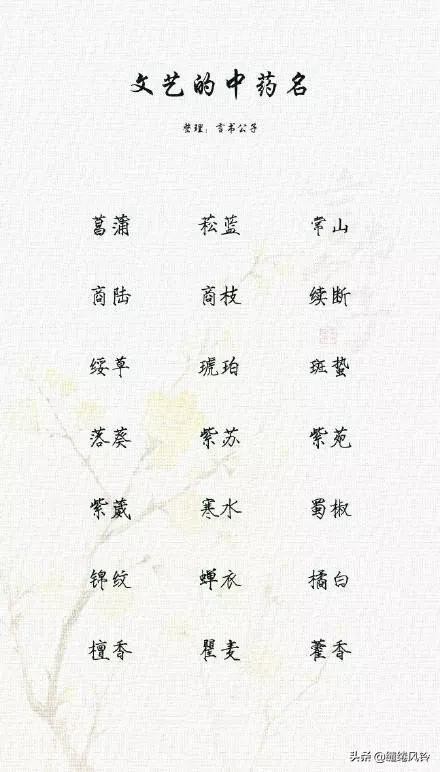 文艺的中药名
整理：言书公子
菖蒲 菘蓝 常山
商陆 商枝 续断
绥草 琥珀 斑蛰
落葵 紫苏 紫苑
紫葳 寒水 蜀椒
锦纹 蝉衣 橘白
檀香 瞿麦 藿香
头条 @缠绻风铃